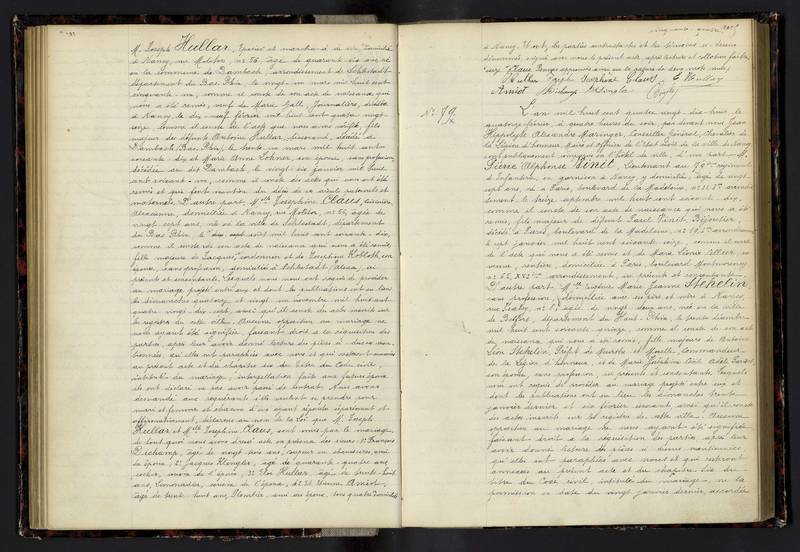 M. Joseph Hullar, Epicier et marchand de vin, domicilié
à Nancy, rue Molitor, no 56, âgé de quarante six ans, né
en la commune de Dambach, arrondissement de Schlestadt
département du Bas-Rhin, le vingt un mars mil huit cent
cinquante-un, comme il conste de son acte de naissance qui
nous a été remis, veuf de Marie Gall, Journalière, décédée
à Nancy, le dix-neuf février mil huit cent quatre vingt
seize, comme il conste de l'acte que nous avons vérifié, fils
majeur des défunts Antoine Hullar, décédé à
Dambach (Bas-Rhin), le trente un mars mil huit cent
soixante-dix et Marie Anne Lohner, son épouse, sans profession,
décédée au dit Dambach, le vingt-six janvier mil huit
cent soixante-un, comme il conste des actes qui nous ont été
remis et qui font mention du décès de ses aïeuls paternels et
maternels. D'autre part, Mlle Joséphine Claus, Cuisinière,
Alsacienne, domiciliée à Nancy, rue Molitor, no 56, âgée de
vingt sept ans, née en la ville de Schlestadt, département
du Bas Rhin, le mil huit cent soixante-dix,
comme il conste de son acte de naissance qui nous a été remis,
fille majeure de Jacques, cordonnier et de Joséphine Kobloth, son
épouse, sans profession, domiciliés à Schlestadt (Alsace), ici
présents et consentants. Lesquels nous ont requis de procéder
au mariage projeté entre eux et dont les publications ont eu lieu
les dimanches quatorze et vingt-un novembre mil huit cent
quatre vingt-dix-sept, ainsi qu'il conste des actes inscrits sur
le registre de cette ville. Aucune opposition au mariage ne
nous ayant été signifiée, faisant droit à la réquisition des
parties, après leur avoir donné lecture des pièces ci-dessus men-
tionnées, qu'elles ont paraphées avec nous et qui resteront annexées
au présent acte et du chapitre six du titre du Code civil,
intitulé du mariage, interpellation faite aux futurs époux
ils ont déclaré ne pas avoir passé de contrat. Nous avons
demandé aux requérants s'ils veulent se prendre pour
mari et femme et chacun d'eux ayant répondu séparément et
affirmativement, déclarons au nom de la loi que M. Joseph
Hullar et Mlle Joséphine Claus, sont unis par le mariage
de tout quoi nous avons dressé acte en présence des sieurs : 1o François
Pichamp, âgé de vingt trois ans, coupeur en chaussures, ami
de l'époux, 2o Jacques Klengler, âgé de quarante quatre ans,
cocher, ami de l'époux, 3o Eloi Hullar, âgé de trente-huit
ans, Limonadier, cousin de l'époux, et 4o Etienne Amiot,
âgé de trente huit ans, Plombier, ami des époux, tous quatre domiciliés
à Nancy. Dont, les parties contractantes et les témoins ci-dessus
dénommés, signé avec nous le présent acte, après lecture et collation faite
Hullar Joseph Joséphine Claus E Hullar
Amiot
No 79.
L'an mil huit cent quatre vingt-dix-huit, le
quatorze février, à quatre heures du soir, par devant nous Jean
Hippolyte Alexandre Maringer, Conseiller Général, Chevalier de
la Légion d'honneur, Maire et officier de l'état civil de la ville de Nancy,
sont publiquement comparus en l'hôtel de ville, d'une part M.
Pierre Alphonse Vinet, Lieutenant au 79ème régiment
d'Infanterie, en garnison à Nancy, y domicilié, âgé de vingt-
sept ans, né à Paris, boulevard de la Madeleine, arrondis-
sement, le treize septembre mil huit cent soixante-dix,
comme il conste de son acte de naissance qui nous a été
remis, fils majeur de défunt Paul Vinet, Bijoutier,
décédé à Paris, boulevard de la Madeleine, arrondissement
le sept janvier mil huit cent soixante seize, comme il conste
de l'acte qui nous a été remis et de Marie Léonie Cellier, sa
veuve, rentière, domiciliée à Paris, boulevard Montmorency
no 65, XVIème arrondissement, ici présente et consentante.
D'autre part, Mlle Eugénie Marie Jeanne Stehelin
sans profession, domiciliée avec ses père et mère à Nancy,
rue Grafigny, âgée de vingt deux ans, née en la ville
de Belfort, département du Haut Rhin, le trente décembre
mil huit cent soixante quinze, comme il conste de son acte
de naissance, qui nous a été remis, fille majeure de Antoine
Léon Stehelin, Préfet de Meurthe et Moselle, Commandeur
de la Légion d'honneur, et de Marie Joséphine
son épouse, sans profession, ici présents et consentants. Lesquels
nous ont requis de procéder au mariage projeté entre eux et
dont les publications ont eu lieu les dimanches trente
janvier dernier et six février courant ainsi qu'il conste
des actes inscrits sur les registres de cette ville. Aucune
opposition au mariage ne nous ayant été signifiée
faisant droit à la réquisition des parties après leur
avoir donné lecture des pièces ci-dessus mentionnées
qu'elles ont paraphées avec nous et qui resteront
annexées au présent acte et du chapitre six du
titre du Code civil, intitulé du mariage, vu la
permission en date du vingt janvier dernier, accordée